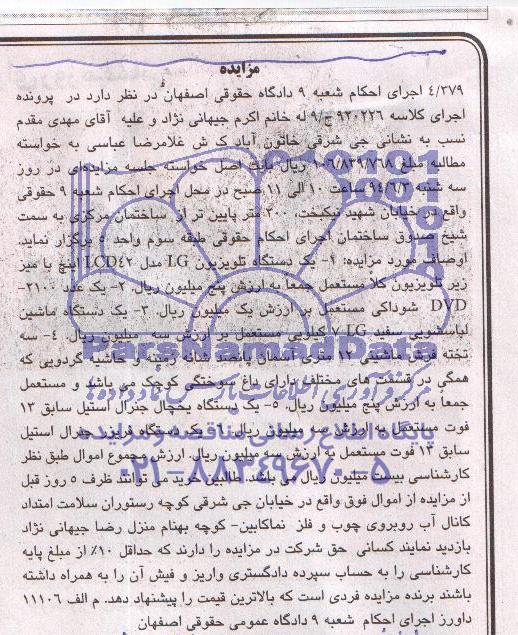 مزایده
۴/۳۷۹ اجرای احکام شعبه ۹ دادگاه حقوقی اصفهان در نظر دارد در پرونده
اجرای کلاسه ۹۳۰۲۲۶ ج/۹ له خانم اکرم جیهانی نژاد و علیه آقای مهدی مقدم
نسب به نشانی جی شرقی خاتون آباد ک ش غلامرضا عباسی به خواسته
مطالبه مبلغ ریال بابت اصل خواسته جلسه مزایده‌ای در روز
سه شنبه ۹۴/۶/۳ ساعت ۱۰ الی ۱۱ صبح در محل اجرای احکام شعبه ۹ حقوقی
واقع در خیابان شهید نیکبخت، ۲۰۰ متر پایین تر از ساختمان مرکزی به سمت
شیخ صدوق ساختمان اجرای احکام حقوقی طبقه سوم واحد ۵ برگزار نماید.
اوصاف مورد مزایده: ۱- یک دستگاه تلویزیون LG مدل LCD۴۲ اینچ با میز
زیر تلویزیون کلاً مستعمل جمعاً به ارزش پنج میلیون ریال. ۲- یک عدد ۲۱۰۰-
DVD شوداکی مستعمل بر ارزش یک میلیون ریال. ۳- یک دستگاه ماشین
لباسشویی سفید LG ۷ کیلویی مستعمل بر ارزش سه میلیون ریال. ۴- سه
تخته فرش ماشینی ۱۲ متری آسمان پانصد شانه زمینه و حاشیه گردویی که
همگی در قسمت های مختلف دارای داغ سوختگی کوچک می باشد و مستعمل
جمعاً به ارزش پنج میلیون ریال. ۵- یک دستگاه یخچال جنرال استیل سابق ۱۳
فوت مستعمل به ارزش سه میلیون ریال. ۶- یک دستگاه فریزر جنرال استیل
سابق ۱۳ فوت مستعمل به ارزش سه میلیون ریال. ارزش مجموع اموال طبق نظر
کارشناسی بیست میلیون ریال می باشد. طالبین خرید می توانند ظرف ۵ روز قبل
از مزایده از اموال فوق واقع در خیابان جی شرقی کوچه رستوران سلامت امتداد
کانال آب روبروی چوب و فلز نماکابین- کوچه بهنام منزل رضا جیهانی نژاد
بازدید نمایند کسانی حق شرکت در مزایده را دارند که حداقل ۱۰٪ از مبلغ پایه
کارشناسی را به حساب سپرده دادگستری واریز و فیش آن را به همراه داشته
باشند برنده مزایده فردی است که بالاترین قیمت را پیشنهاد دهد. م الف ۱۱۱۰۶
داورز اجرای احکام شعبه ۹ دادگاه عمومی حقوقی اصفهان
ParsNamadData
مرکز فرآوری اطلاعات پارس نماد داده ها
پایگاه اطلاع رسانی مناقصه و مزایده
۰۲۱-۸۸۳۴۹۶۷۰-۵